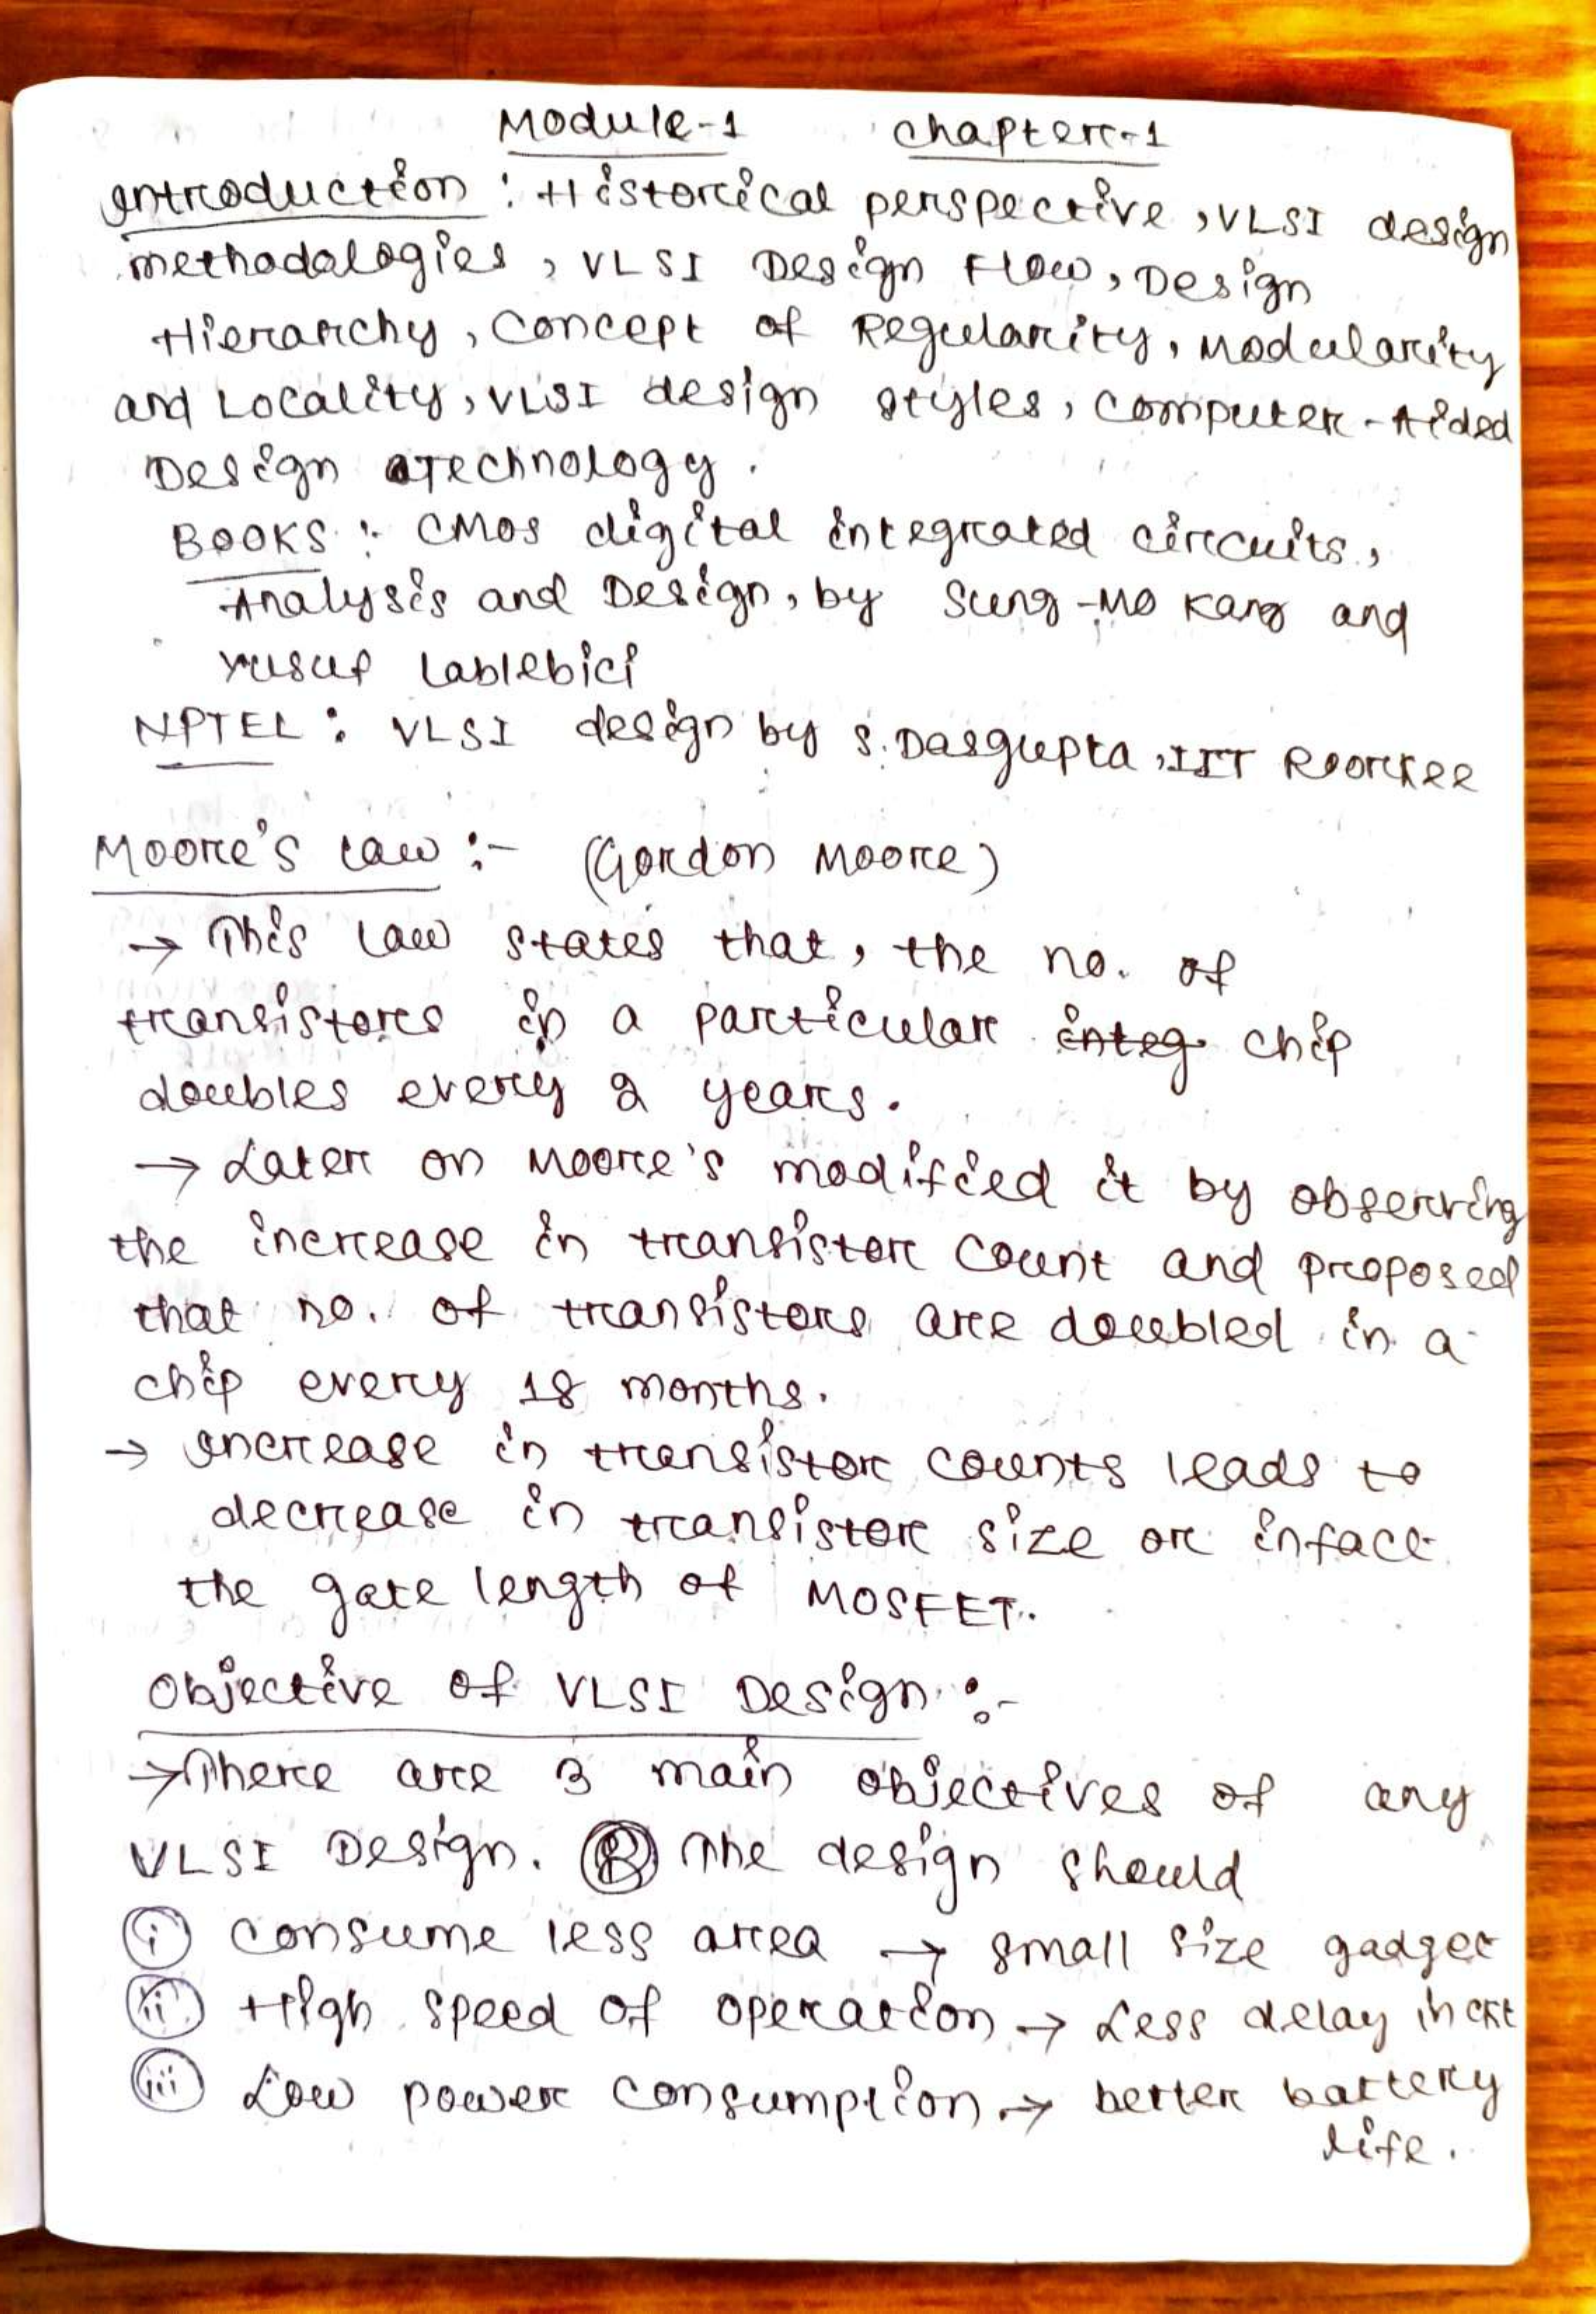 Module-1 Chapter-1
Introduction : Historical perspective, VLSI design
methodologies, VLSI Design Flow, Design
Hierarchy, Concept of Regularity, Modularity
and Locality, VLSI design styles, Computer-Aided
Design Technology.
BOOKS : CMOS digital integrated circuits,
Analysis and Design, by Sung-Mo Kang and
Yusuf Lablebici
NPTEL : VLSI design by S. Dasgupta, IIT Roorkee
Moore's Law :- (Gordon Moore)
→ This law states that, the no. of
transistors in a particular integ. chip
doubles every 2 years.
→ Later on Moore's modified it by observing
the increase in transistor count and proposed
that no. of transistors are doubled in a
chip every 18 months.
→ Increase in transistor counts leads to
decrease in transistor size or infact
the gate length of MOSFET.
Objective of VLSI Design :-
→ There are 3 main objectives of any
VLSI Design. The design should
(i) Consume less area → small size gadget
(ii) High speed of operation → Less delay in ckt
(iii) Low power consumption → better battery
life.